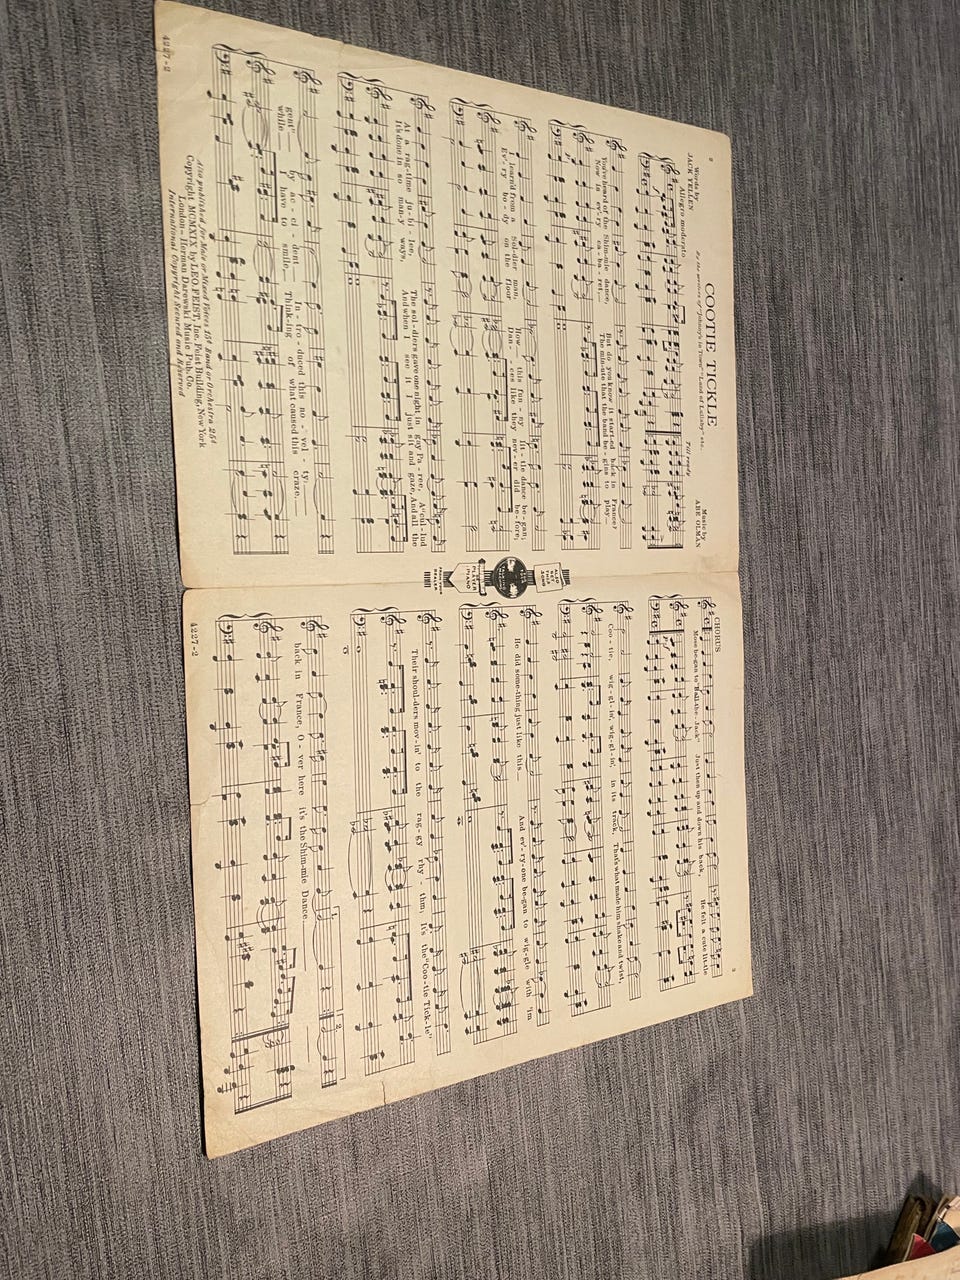 2
COOTIE TICKLE
Words by
JACK YELLEN
By the writers of "Johnny's in Town" "Land of Lullaby" etc.
Music by
ABE OLMAN
Allegro moderato
Till ready
You've heard of the Shim-mie dance, But do you know it started back in France?
Now in ev'-ry ca-ba-ret, The min-ute that the band be-gins to play
I learn'd from a Sol-dier man, How this fun-ny lit-tle dance be-gan;
Ev'-ry bo-dy on the floor Dan-ces like they nev-er did be-fore;
At a rag-time ju-bi-lee, The sol-diers gave one night in gay Pa-ree, A "cul-lud
It's done in so man-y ways, And when I see it I just sit and gaze, And all the
gent" by ac-ci-dent In-tro-duced this no-vel-ty.
while I have to smile, Think-ing of what caused this craze.
Also published for Male or Mixed Voices 15¢ Band or Orchestra 25¢
Copyright MCMXIX by LEO. FEIST, Inc. Feist Building, New York
London - Herman Darewski Music Pub. Co.
International Copyright Secured and Reserved
4227-2
ALSO
GET
THIS
SONG
FOR YOUR
PLAYER
PIANO
FROM YOUR
DEALER
3
CHORUS
Mose be-gan to "Ball-the-Jack" Just then up and down his back, He felt a cute lit-tle
Coo-tie, wig-gl-in', wig-gl-in', in its track, That's what made him shake and twist,
He did some-thing just like this And ev'-ry-one be-gan to wig-gle with 'im
Their shoul-ders mov-in' to the rag-gy rhy-thm, It's the "Coo-tie Tick-le"
1. 2.
back in France, O-ver here it's the Shim-mie Dance.
4227-2